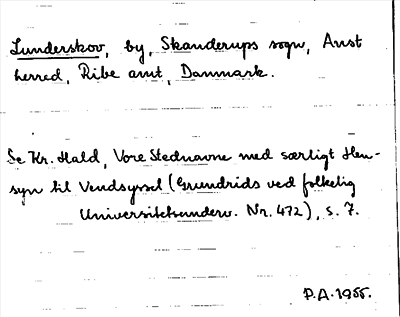 Lunderskov, by, Skanderups sogn, Anst
herred, Ribe amt, Danmark.
Se Kr. Hald, Vore Stednavne med særligt Hen-
syn til Vendsyssel (Grundrids ved folkelig
Universitetsunderv. Nr. 472), s. 7.
P.A. 1955.